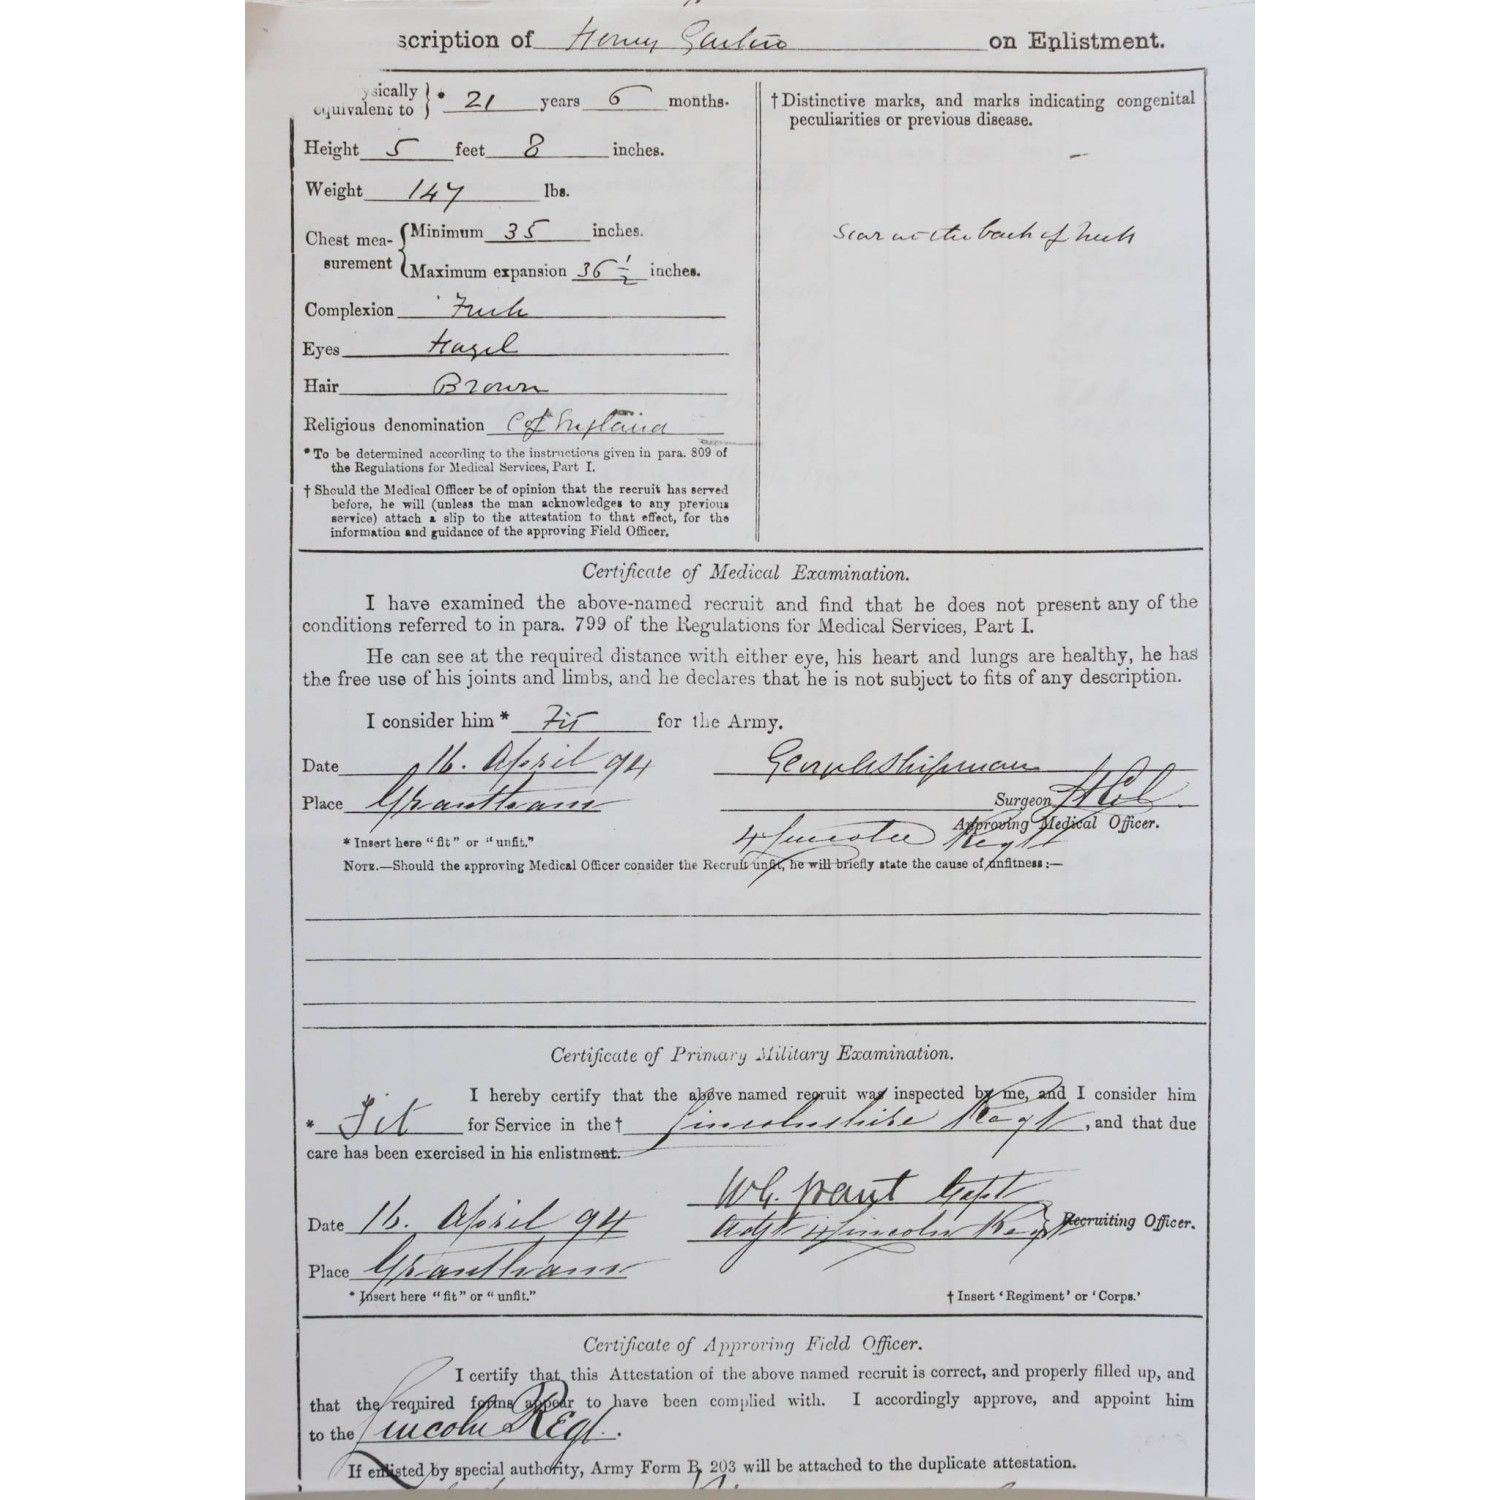 scription of Henry on Enlistment.
ysically equivalent to } * 21 years 6 months.
Height 5 feet 8 inches.
Weight 147 lbs.
Chest mea-surement { Minimum 35 inches.
Maximum expansion 36 1/2 inches.
Complexion Fresh
Eyes Hazel
Hair Brown
Religious denomination C of England
* To be determined according to the instructions given in para. 809 of
the Regulations for Medical Services, Part I.
† Should the Medical Officer be of opinion that the recruit has served
before, he will (unless the man acknowledges to any previous
service) attach a slip to the attestation to that effect, for the
information and guidance of the approving Field Officer.
† Distinctive marks, and marks indicating congenital
peculiarities or previous disease.
Scar at the back of neck
Certificate of Medical Examination.
I have examined the above-named recruit and find that he does not present any of the
conditions referred to in para. 799 of the Regulations for Medical Services, Part I.
He can see at the required distance with either eye, his heart and lungs are healthy, he has
the free use of his joints and limbs, and he declares that he is not subject to fits of any description.
I consider him * Fit for the Army.
Date 16. April 94 Shipman
Place Grantham Surgeon
Approving Medical Officer.
4 Lincoln Regt
* Insert here "fit" or "unfit."
NOTE.—Should the approving Medical Officer consider the Recruit unfit, he will briefly state the cause of unfitness:—
Certificate of Primary Military Examination.
I hereby certify that the above named recruit was inspected by me, and I consider him
* Fit for Service in the † Lincolnshire Regt, and that due
care has been exercised in his enlistment.
W.G. Grant Capt
Date 16. April 94 Adjt 4 Lincoln Regt Recruiting Officer.
Place Grantham
* Insert here "fit" or "unfit." † Insert 'Regiment' or 'Corps.'
Certificate of Approving Field Officer.
I certify that this Attestation of the above named recruit is correct, and properly filled up, and
that the required forms appear to have been complied with. I accordingly approve, and appoint him
to the Lincoln Regt.
If enlisted by special authority, Army Form B. 203 will be attached to the duplicate attestation.